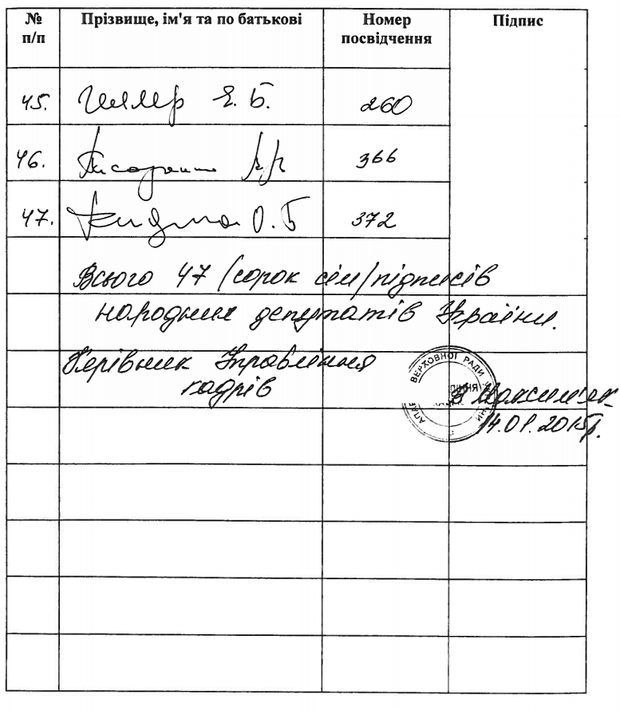 № п/п Прізвище, ім'я та по батькові Номер посвідчення Підпис
45. Геллер Є. Б. 260
46. 366
47. О. Б 372
Всього 47 /сорок сім/ підписів
народних депутатів України.
Керівник Управління
кадрів
ВЕРХОВНОЇ РАДИ
14.01.2015р.